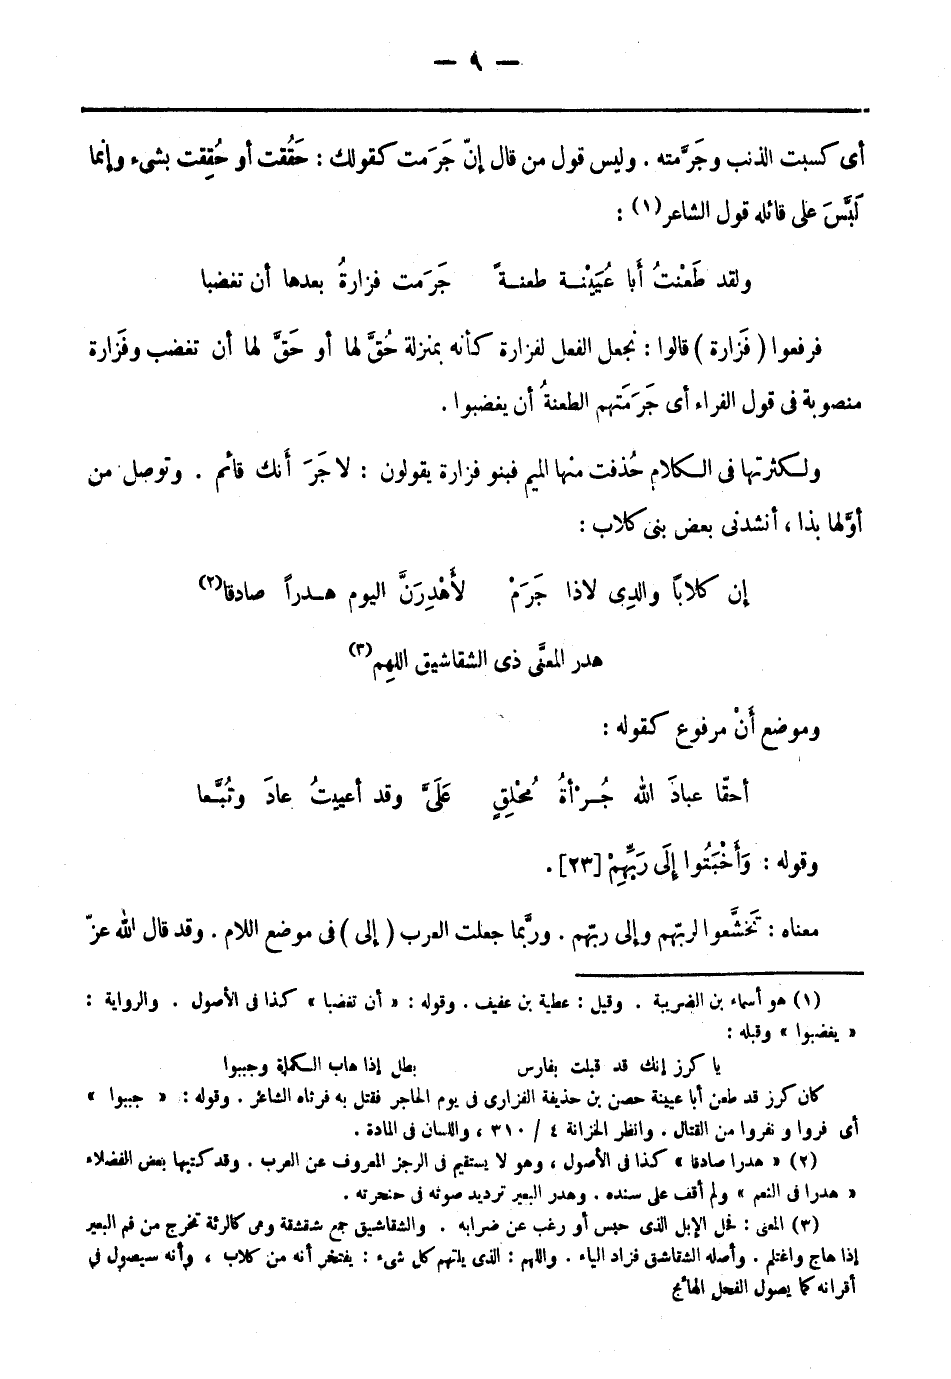 — ٩ —
أى كسبت الذنب وجَرَّمته . وليس قول من قال إنّ جَرَمت كقولك : حَقُقت أو حُقِقت بشىء وإنما
لَبَّسَ على قائله قول الشاعر(١) :
ولقد طَعَنْتُ أبا عُيَيْنـــة طعنــةً جَرَمت فزارةُ بعدها أن تغضبا
فرفعوا ( فَزارة ) قالوا : نجعل الفعل لفزارة كأنه بمنزلة حُقَّ لها أو حَقَّ لها أن تغضب وفَزارة
منصوبة فى قول الفراء أى جَرَمَتهم الطعنةُ أن يغضبوا .
ولكثرتها فى الكلام حُذفت منها الميم فبنو فزارة يقولون : لا جَرَ أنك قائم . وتوصل من
أوَّلها بذا ، أنشدنى بعض بنى كلاب :
إن كلاباً والدِى لاذا جَرَمْ لأَهْدِرَنَّ اليوم هــدراً صادقا(٢)
هدر المعنَّى ذى الشقاشيق اللهِم(٣)
وموضع أَنْ مرفوع كقوله :
أحقّا عبادَ الله جُــرْأةُ مُحْلِقٍ عَلَىَّ وقد أعييتُ عادَ وتُبَّعا
وقوله : وَأَخْبَتُوا إِلَى رَبِّهِمْ [٢٣] .
معناه : تَخَشَّعوا لربّهم وإلى ربّهم . وربَّما جعلت العرب ( إلى ) فى موضع اللام . وقد قال الله عزّ
(١) هو أسماء بن الضريبة . وقيل : عطية بن عفيف . وقوله : « أن تغضبا » كذا فى الأصول . والرواية :
« يغضبوا » وقبله :
يا كرز إنك قد قبلت بفارس بطل إذا هاب الكماة وجببوا
كان كرز قد طعن أبا عيينة حصن بن حذيفة الفزارى فى يوم الحاجر فقتل به فرثاه الشاعر . وقوله : « جببوا »
أى فروا و نفروا من القتال . وانظر الخزانة ٤ / ٣١٠ ، واللسان فى المادة .
(٢) « هدرا صادقا » كذا فى الأصول ، وهو لا يستقيم فى الرجز المعروف عن العرب . وقد كتبها بعض الفضلاء
« هدرا فى النعم » ولم أقف على سنده . وهدر البعير ترديد صوته فى حنجرته .
(٣) المعنى : فحل الإبل الذى حبس أو رغب عن ضرابه . والشقاشيق جمع شقشقة وهى كالرئة تخرج من فم البعير
إذا هاج واغتلم . وأصله الشقاشق فزاد الياء . واللهم : الذى يلتهم كل شىء : يفتخر أنه من كلاب ، وأنه سيصول فى
أقرانه كما يصول الفحل الهائج